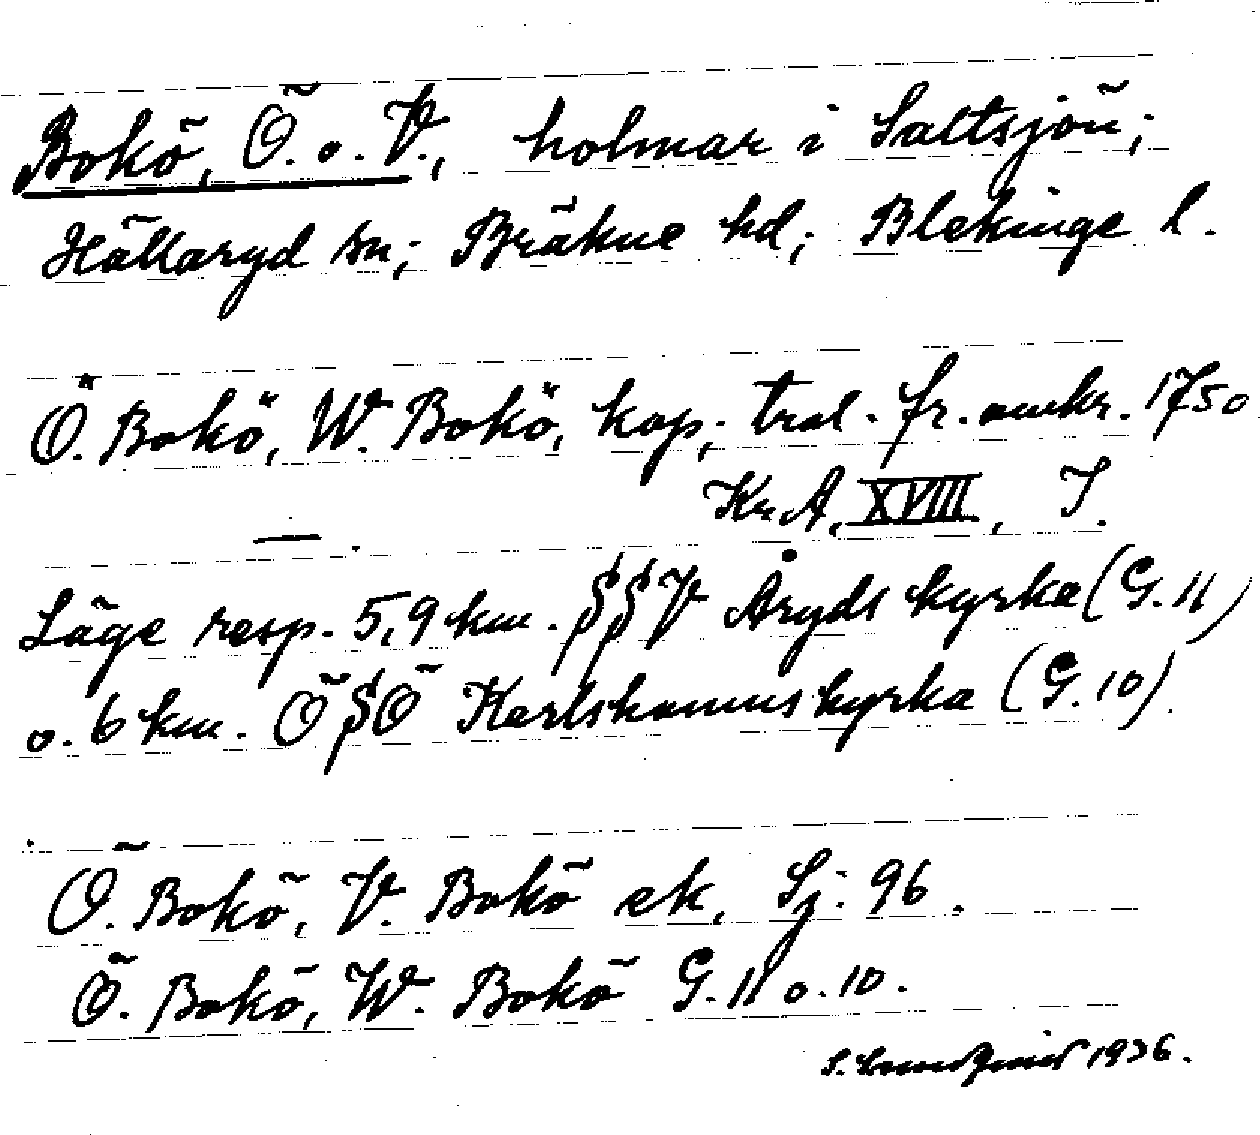 Bokö, Ö. o. V., holmar i Saltsjön;
Hällaryd sn; Bräkne hd; Blekinge l.
Ö. Bokö, W. Bokö, kop; tral. fr. omkr. 1750
Kr.A, XVIII, I.
—
Läge resp. 5,9 km. SSV Åryds kyrka (G. 11)
o. 6 km. ÖSÖ Karlshamns kyrka (G. 10).
Ö. Bokö, V. Bokö ek, Sj: 96.
Ö. Bokö, W. Bokö G. 11 o. 10.
S. 1936.